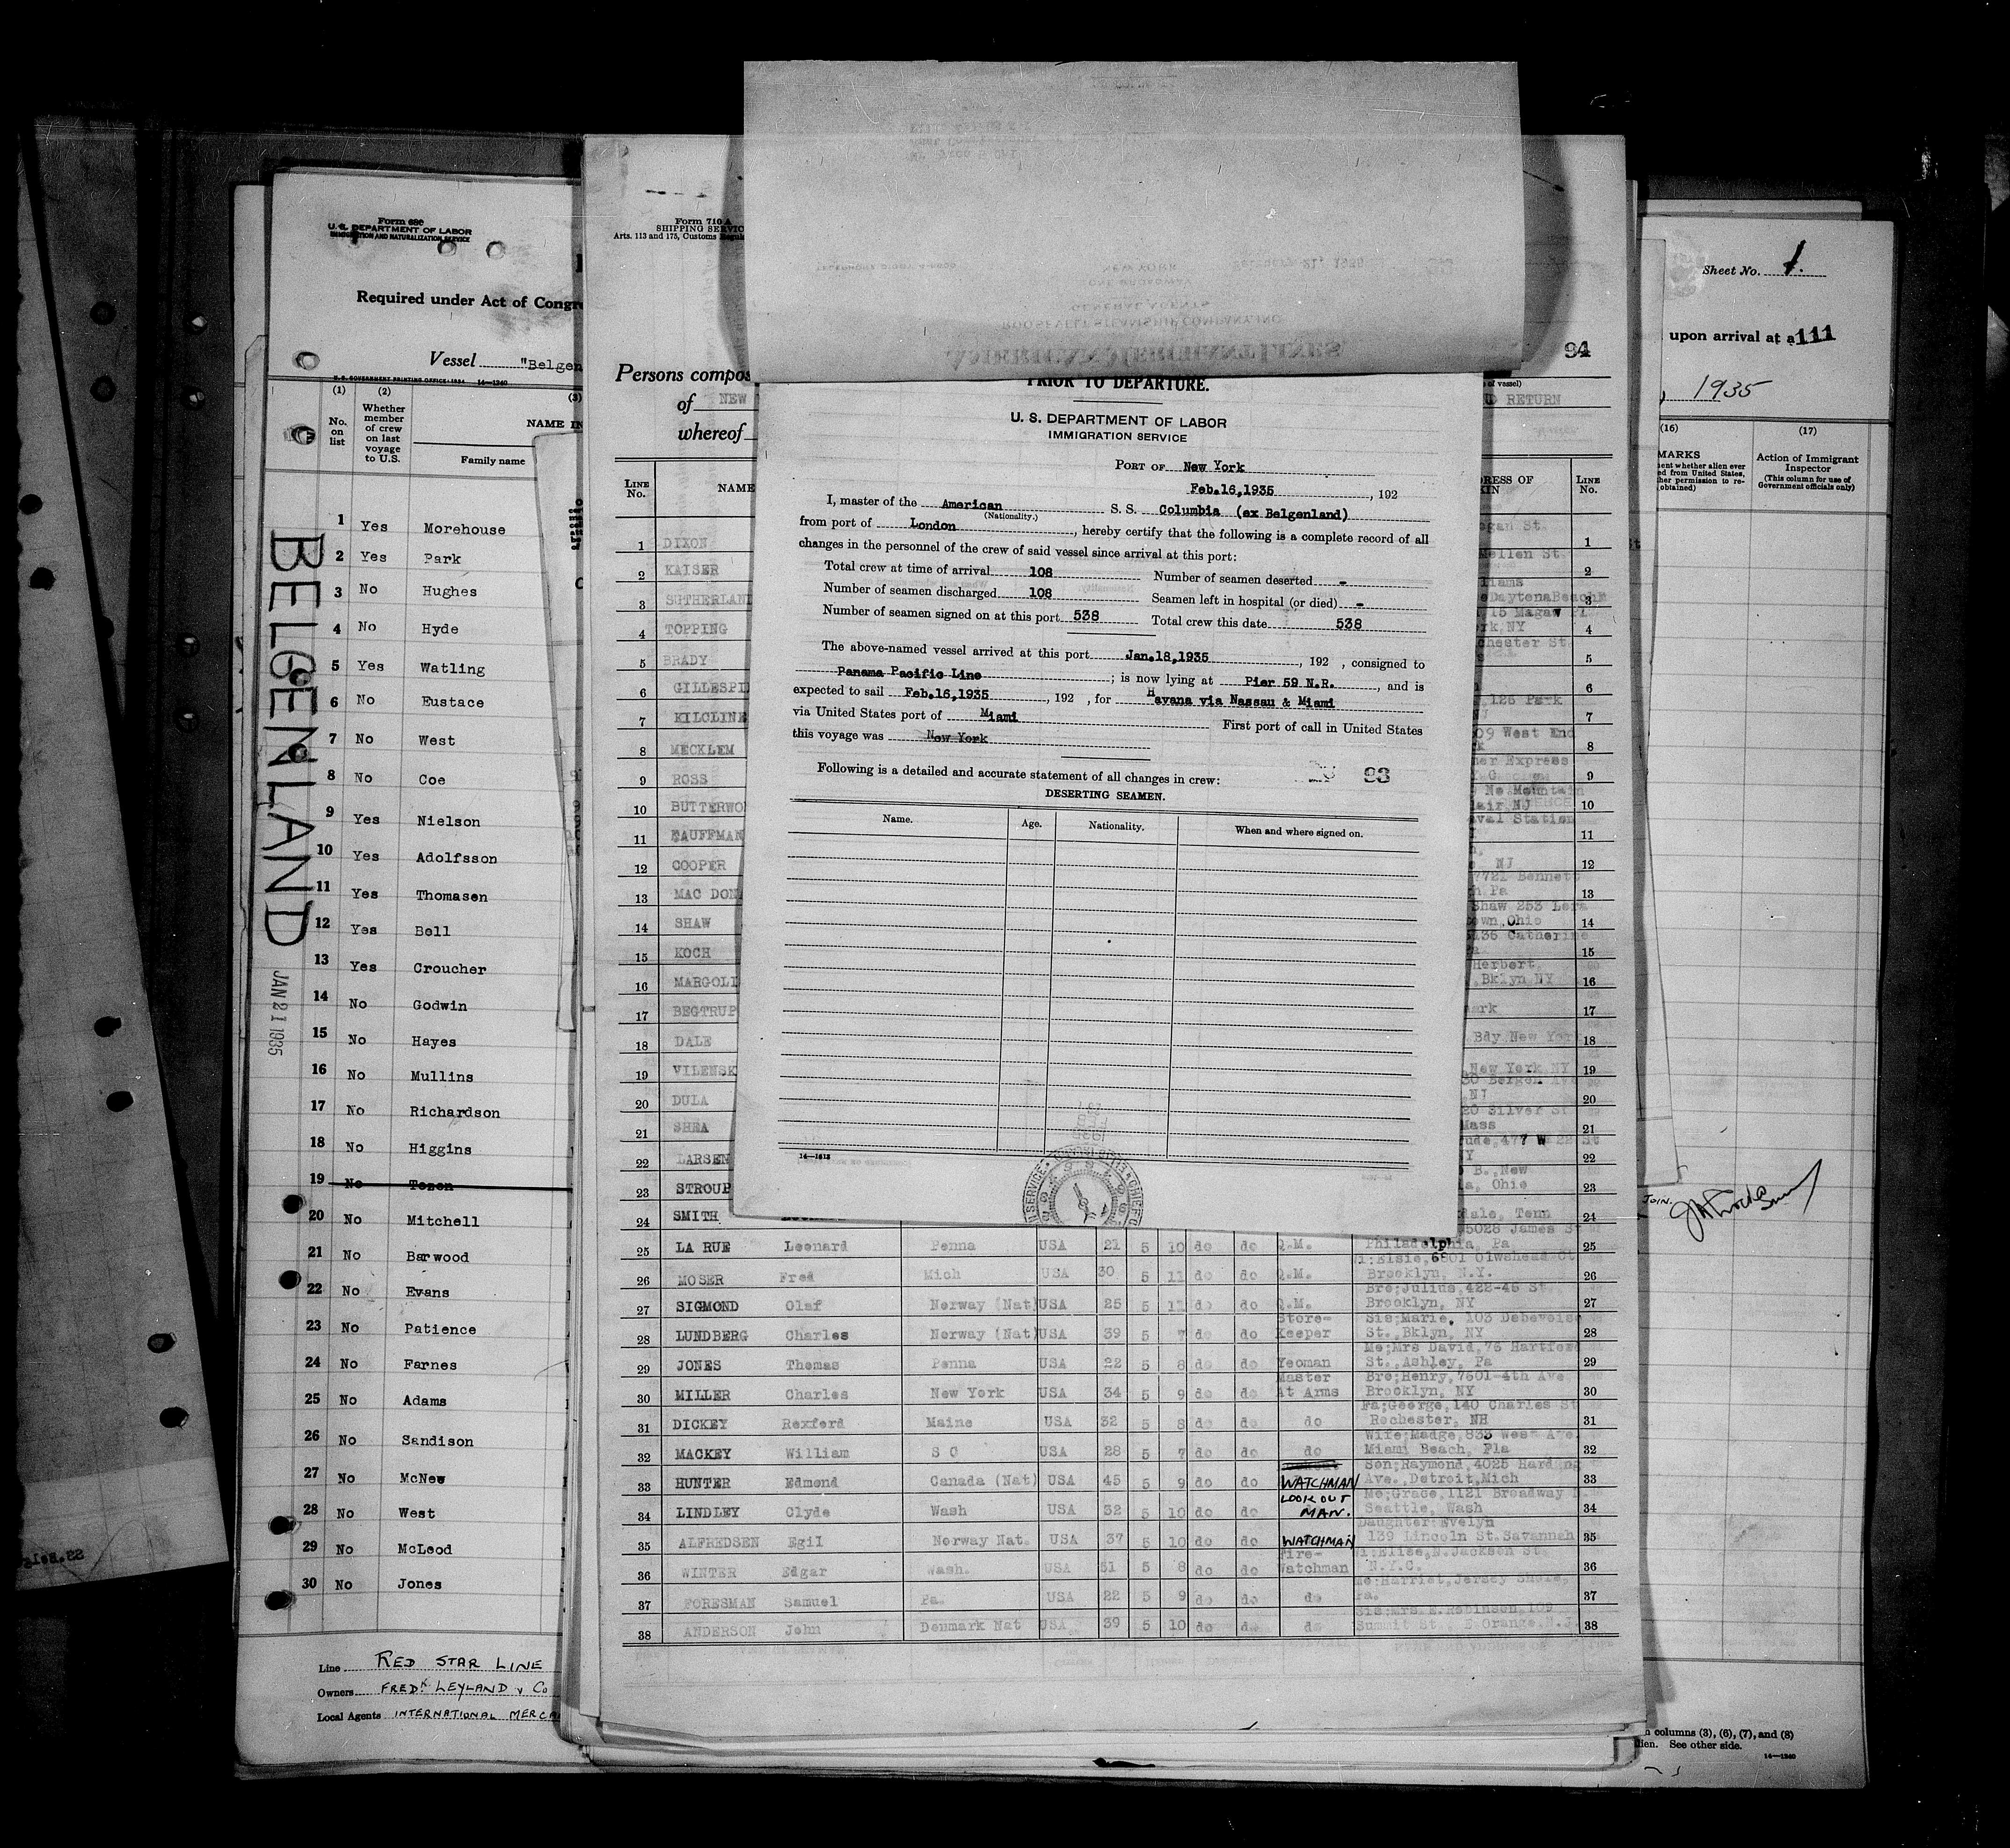 Form 680
U. S. DEPARTMENT OF LABOR
IMMIGRATION AND NATURALIZATION SERVICE
Required under Act of Congre
Vessel "Belgen
U. S. GOVERNMENT PRINTING OFFICE: 1934 14—1240
(1) (2) (3)
No. on list
Whether member of crew on last voyage to U.S.
NAME IN
Family name
1 Yes Morehouse
2 Yes Park
3 No Hughes
4 No Hyde
5 Yes Watling
6 No Eustace
7 No West
8 No Coe
9 Yes Nielson
10 Yes Adolfsson
11 Yes Thomasen
12 Yes Bell
13 Yes Croucher
14 No Godwin
15 No Hayes
16 No Mullins
17 No Richardson
18 No Higgins
19 No
20 No Mitchell
21 No Barwood
22 No Evans
23 No Patience
24 No Farnes
25 No Adams
26 No Sandison
27 No McNew
28 No West
29 No McLeod
30 No Jones
BELGENLAND
JAN 21 1935
Line RED STAR LINE
Owners FREDK LEYLAND & Co
Local Agents INTERNATIONAL MERCA
Form 710 A
SHIPPING SERVIC
Arts. 113 and 175, Customs Regul
94
Persons compos
of NEW
whereof
of vessel)
D RETURN
LINE No.
NAME
RESS OF
KIN
LINE No.
1 DIXON 1
2 KAISER Mellen St. 2
3 SUTHERLAND DaytonaBeach 3
4 TOPPING 15 Magaw Pl 4
rk, NY
5 BRADY chester St. 5
6 GILLESPI 6
7 KILCLINE 126 Park 7
8 MECKLEM 09 West End 8
9 ROSS er Express 9
10 BUTTERWO No Mountain 10
lair NJ
11 KAUFFMAN aval Station 11
12 COOPER NJ 12
13 MAC DON 7721 Bennett 13
h Pa
14 SHAW Shaw 253 Lora 14
own, Ohio
15 KOCH 5136 Catherine 15
16 MARGOLI Herbert, 16
Bklyn NY
17 BEGTRUP ark 17
18 DALE Bdy New York 18
19 VILENSK New York NY 19
20 DULA 30 Bergen Ave 20
NJ
21 SHEA 20 Silver St 21
Mass
22 LARSEN ude, 477 W 22 St 22
Y
23 STROUP B., New 23
a, Ohio
24 SMITH dale, Tenn 24
5028 James St
25 LA RUE Leonard Penna USA 21 5 10 do do Q.M. Philadelphia, Pa 25
Wi;Elsie, 6801 Olwshead Ct
26 MOSER Fred Mich USA 30 5 11 do do Q.M. Brooklyn, N.Y. 26
Bro;Julius, 422-45 St
27 SIGMOND Olaf Norway (Nat) USA 25 5 11 do do Q.M. Brooklyn, NY 27
Store- Sis;Marie, 103 Debevoise
28 LUNDBERG Charles Norway (Nat) USA 39 5 7 do do Keeper St., Bklyn, NY 28
Mo;Mrs David, 76 Hartford
29 JONES Thomas Penna USA 22 5 8 do do Yeoman St., Ashley, Pa 29
Master Bro;Henry, 7601-4th Ave
30 MILLER Charles New York USA 34 5 9 do do At Arms Brooklyn, NY 30
Fa;George, 140 Charles St
31 DICKEY Rexford Maine USA 32 5 8 do do do Rochester, NH 31
Wife;Madge, 833 West Ave.
32 MACKEY William S C USA 28 5 7 do do do Miami Beach, Fla 32
Son;Raymond, 4025 Harding
33 HUNTER Edmond Canada (Nat) USA 45 5 9 do do WATCHMAN Ave., Detroit, Mich 33
LOOK OUT Mo;Grace, 1121 Broadway
34 LINDLEY Clyde Wash USA 32 5 10 do do MAN. Seattle, Wash 34
Daughter Evelyn
35 ALFREDSEN Egil Norway Nat. USA 37 5 10 do do WATCHMAN 139 Lincoln St. Savannah 35
Fire- Wi;Elise, N. Jackson St.
36 WINTER Edgar Wash. USA 51 5 8 do do Watchman N.Y.C. 36
Mo;Harriet, Jersey Shore,
37 FORESMAN Samuel Pa. USA 22 5 9 do do do Pa. 37
Sis;Mrs. E. Robinson, 109
38 ANDERSON John Denmark Nat USA 39 5 10 do do do Summit St E Orange, N.J. 38
February 21, 1935
NEW YORK
ONE BROADWAY
GENERAL AGENTS
ROOSEVELT STEAMSHIP COMPANY, INC.
PRIOR TO DEPARTURE.
U. S. DEPARTMENT OF LABOR
IMMIGRATION SERVICE
PORT OF New York
Feb.16,1935, 192
I, master of the American S. S. Columbia (ex Belgenland)
(Nationality.)
from port of London, hereby certify that the following is a complete record of all
changes in the personnel of the crew of said vessel since arrival at this port:
Total crew at time of arrival 108 Number of seamen deserted -
Number of seamen discharged 108 Seamen left in hospital (or died) -
Number of seamen signed on at this port 538 Total crew this date 538
The above-named vessel arrived at this port Jan.18,1935, 192 , consigned to
Panama Pacific Line; is now lying at Pier 59 N.R., and is
expected to sail Feb.16,1935, 192 , for Havana via Nassau & Miami
via United States port of Miami First port of call in United States
this voyage was New York
Following is a detailed and accurate statement of all changes in crew: 93
DESERTING SEAMEN.
Name. Age. Nationality. When and where signed on.
14—1613
Sheet No. 1.
upon arrival at a 111
, 1935
(16) (17)
MARKS
Action of Immigrant Inspector
(This column for use of Government officials only)
JOIN.
n columns (3), (6), (7), and (8)
lien. See other side.
14—1240